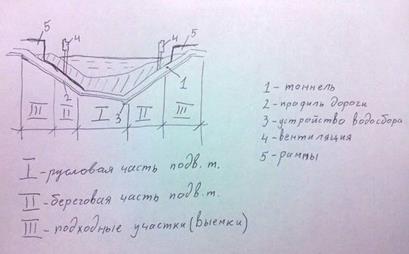 5 4 4 5
1
III II I II III
2 3
1 - тоннель
2 - профиль дороги
3 - устройство водосбора
4 - вентиляция
5 - рампы
I - русловая часть подв. т.
II - береговая часть подв. т.
III - подходные участки (выемки)